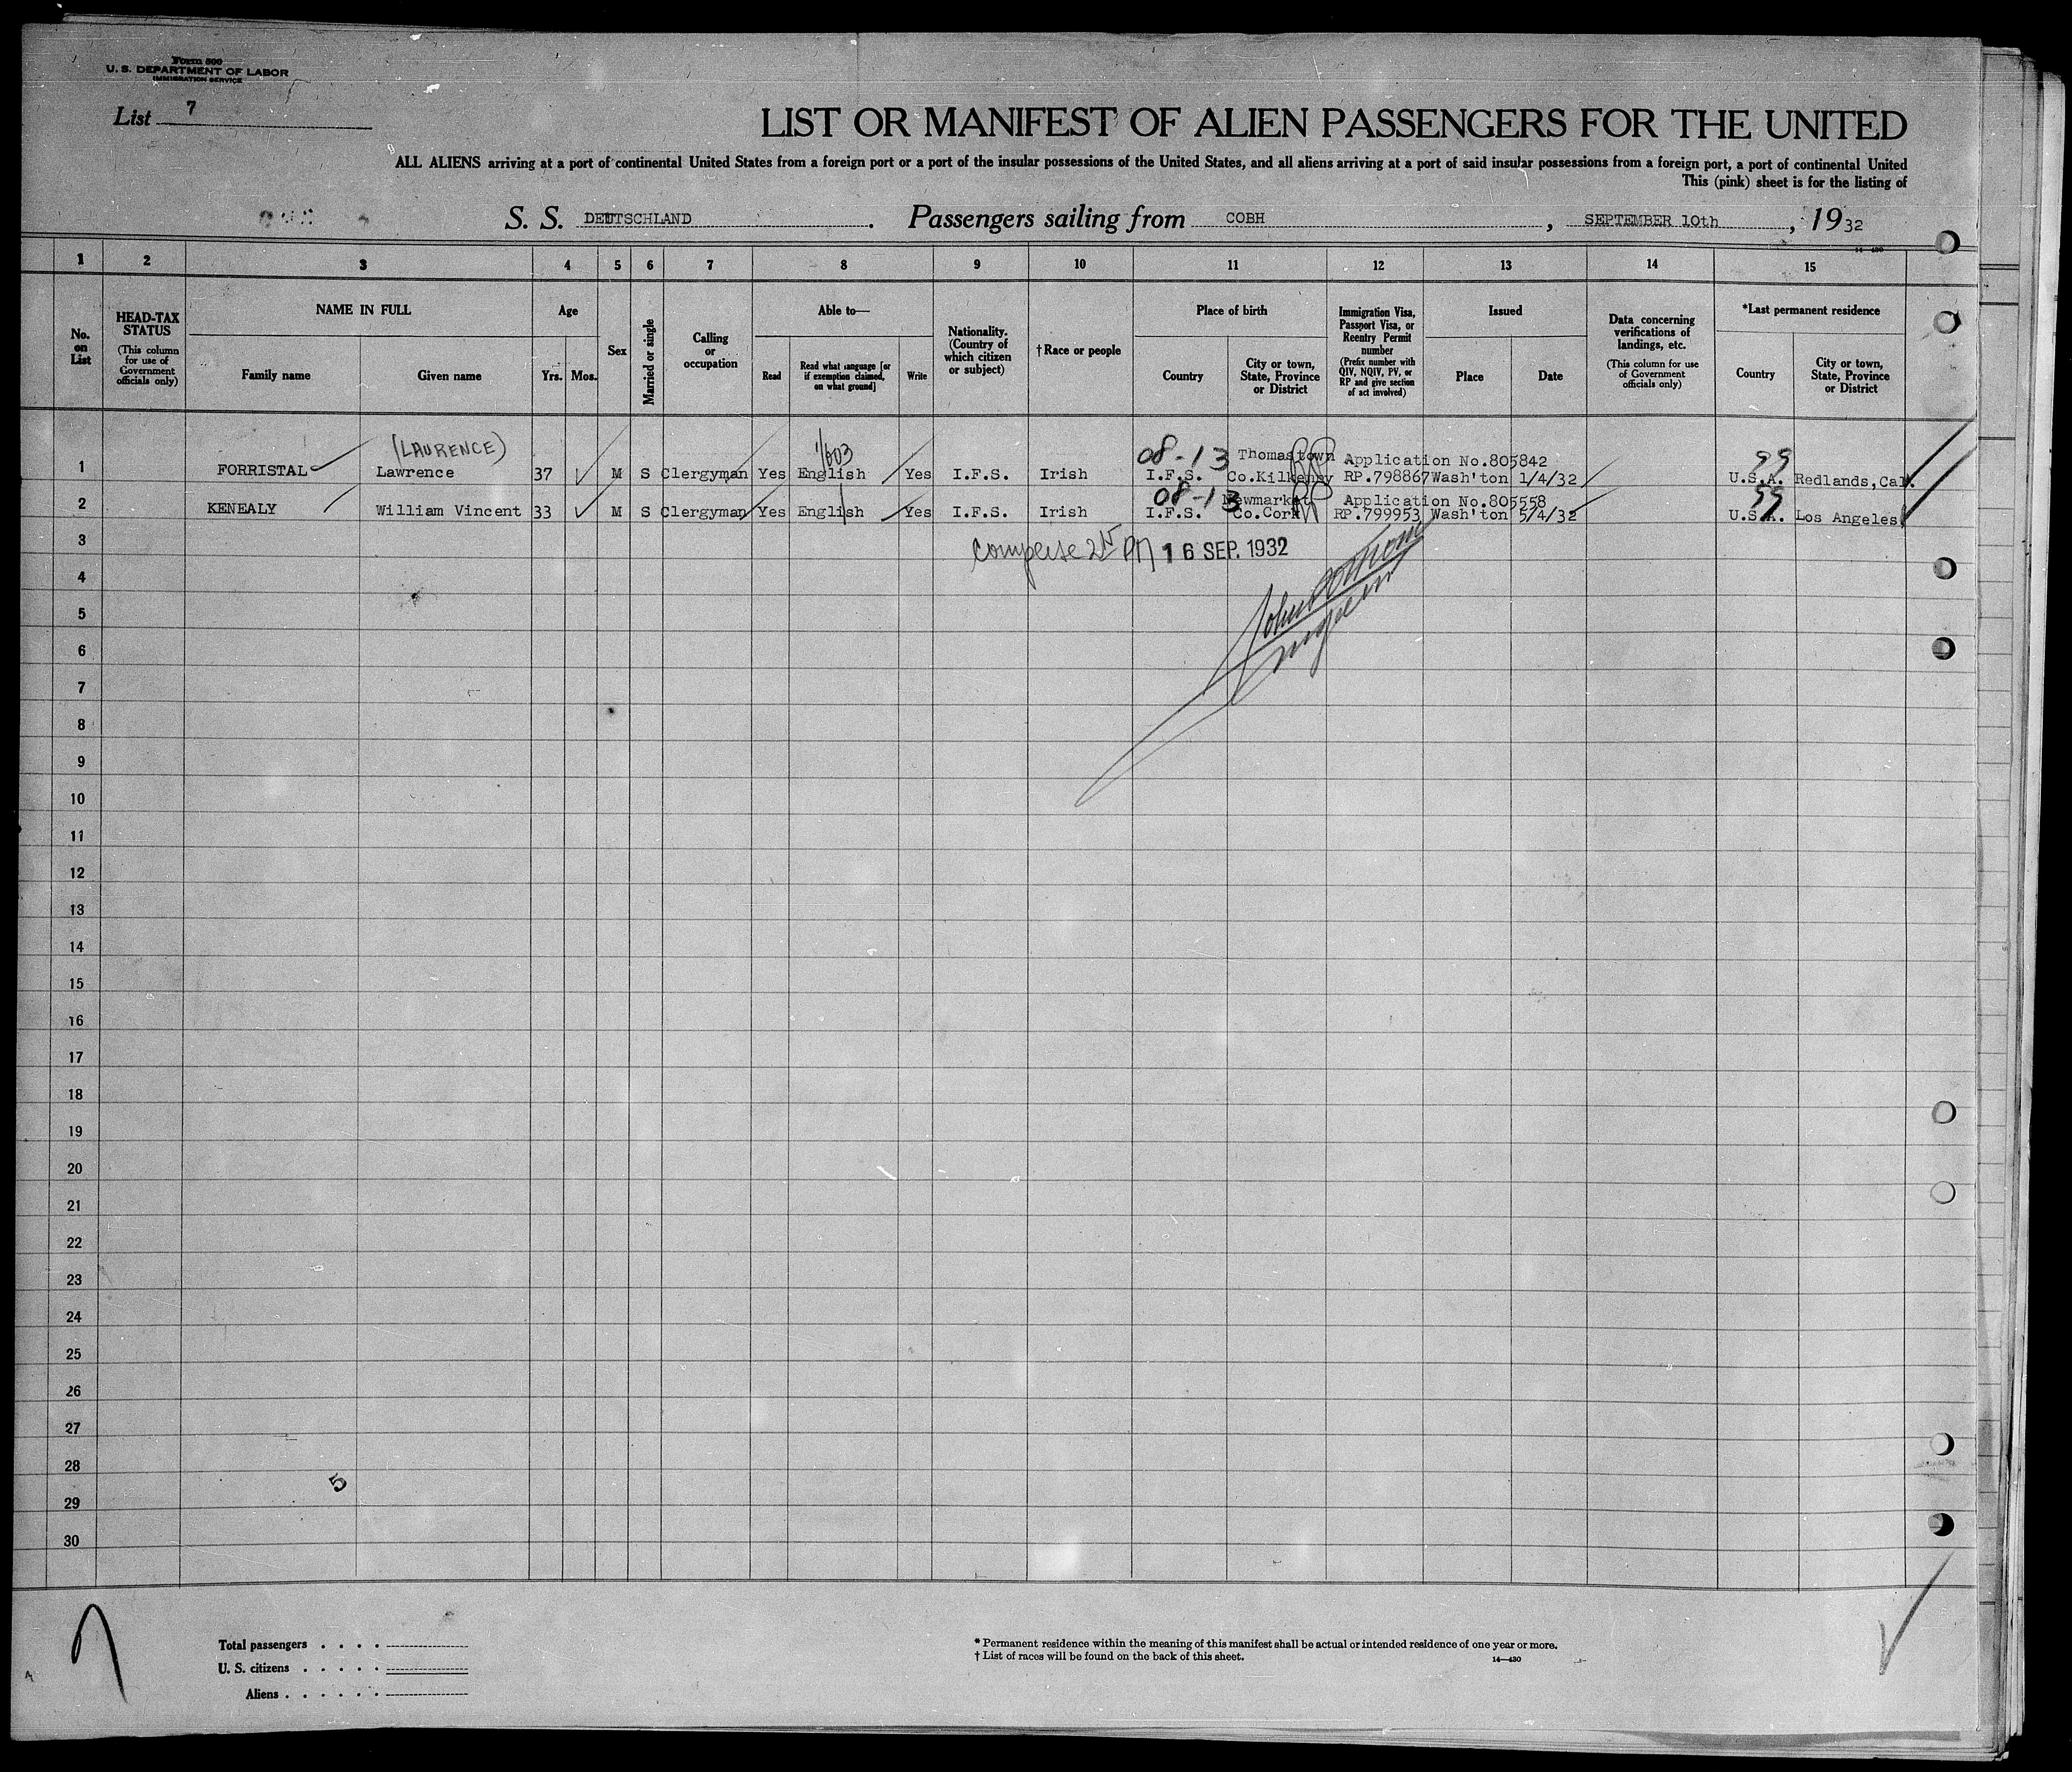 Form 500
U. S. DEPARTMENT OF LABOR
IMMIGRATION SERVICE
List 7
LIST OR MANIFEST OF ALIEN PASSENGERS FOR THE UNITED
ALL ALIENS arriving at a port of continental United States from a foreign port or a port of the insular possessions of the United States, and all aliens arriving at a port of said insular possessions from a foreign port, a port of continental United
This (pink) sheet is for the listing of
S. S. DEUTSCHLAND. Passengers sailing from COBH, SEPTEMBER 10th, 1932
14-430
1 2 3 4 5 6 7 8 9 10 11 12 13 14 15
No. on List
HEAD-TAX STATUS
(This column for use of Government officials only)
NAME IN FULL
Family name
Given name
Age
Yrs. Mos.
Sex
Married or single
Calling or occupation
Able to—
Read
Read what language [or if exemption claimed, on what ground]
Write
Nationality. (Country of which citizen or subject)
†Race or people
Place of birth
Country
City or town, State, Province or District
Immigration Visa, Passport Visa, or Reentry Permit number
(Prefix number with QIV, NQIV, PV, or RP and give section of act involved)
Issued
Place
Date
Data concerning verifications of landings, etc.
(This column for use of Government officials only)
*Last permanent residence
Country
City or town, State, Province or District
(LAURENCE) 1/603 08-13 Thomastown RP Application No.805842 99
1 FORRISTAL Lawrence 37 M S Clergyman Yes English Yes I.F.S. Irish I.F.S. Co.Kilkenny RP.798867 Wash'ton 1/4/32 U.S.A. Redlands,Cal.
08-13 Newmarket RP Application No.805558 99
2 KENEALY William Vincent 33 M S Clergyman Yes English Yes I.F.S. Irish I.F.S. Co.Cork RP.799953 Wash'ton 5/4/32 U.S.A. Los Angeles
3 16 SEP. 1932
4
5
6
7
8
9
10
11
12
13
14
15
16
17
18
19
20
21
22
23
24
25
26
27
28
5
29
30
Total passengers . . . .
U. S. citizens . . . . .
Aliens . . . . . .
* Permanent residence within the meaning of this manifest shall be actual or intended residence of one year or more.
† List of races will be found on the back of this sheet.
14—430